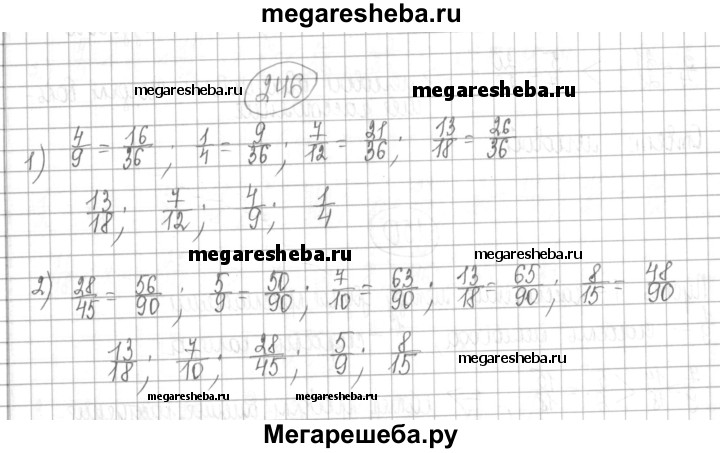 megaresheba.ru
megaresheba.ru 246 megaresheba.ru
1) 4/9 = 16/36; 1/4 = 9/36; 7/12 = 21/36; 13/18 = 26/36
13/18; 7/12; 4/9; 1/4
megaresheba.ru megaresheba.ru
2) 28/45 = 56/90; 5/9 = 50/90; 7/10 = 63/90; 13/18 = 65/90; 8/15 = 48/90
13/18; 7/10; 28/45; 5/9; 8/15
megaresheba.ru
megaresheba.ru megaresheba.ru
Мегарешеба.ру